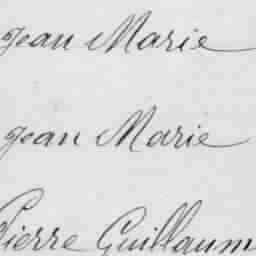 Jean Marie
Jean Marie
Pierre Guillaum